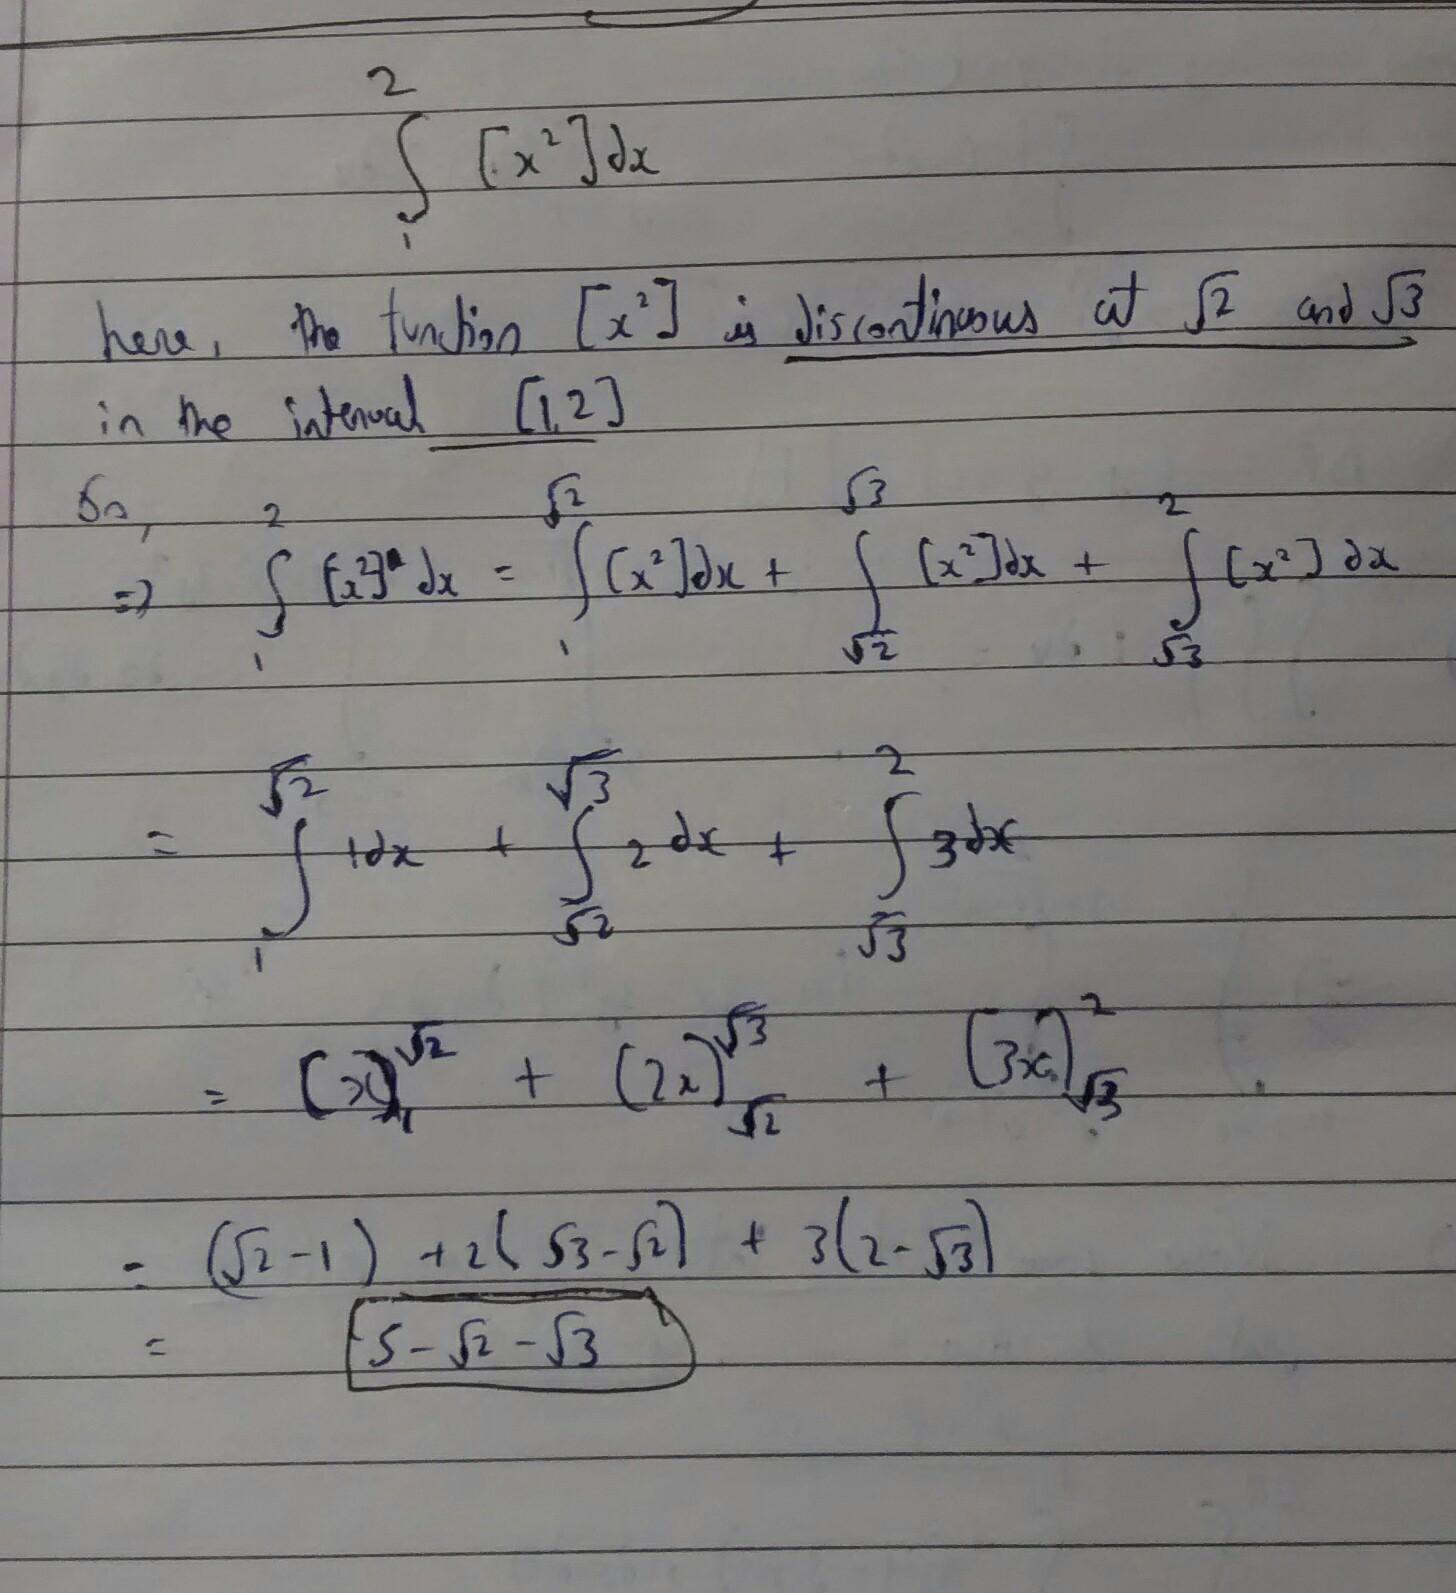 ∫₁² [x²]dx
here, the function [x²] is discontinuous at √2 and √3
in the interval [1,2]
So,
=> ∫₁² [x²] dx = ∫₁^√2 [x²]dx + ∫_√2^√3 [x²]dx + ∫_√3^2 [x²] dx
= ∫₁^√2 1dx + ∫_√2^√3 2 dx + ∫_√3^2 3dx
= (x)₁^√2 + (2x)_√2^√3 + (3x)_√3^2
= (√2-1) + 2(√3-√2) + 3(2-√3)
= 5-√2-√3